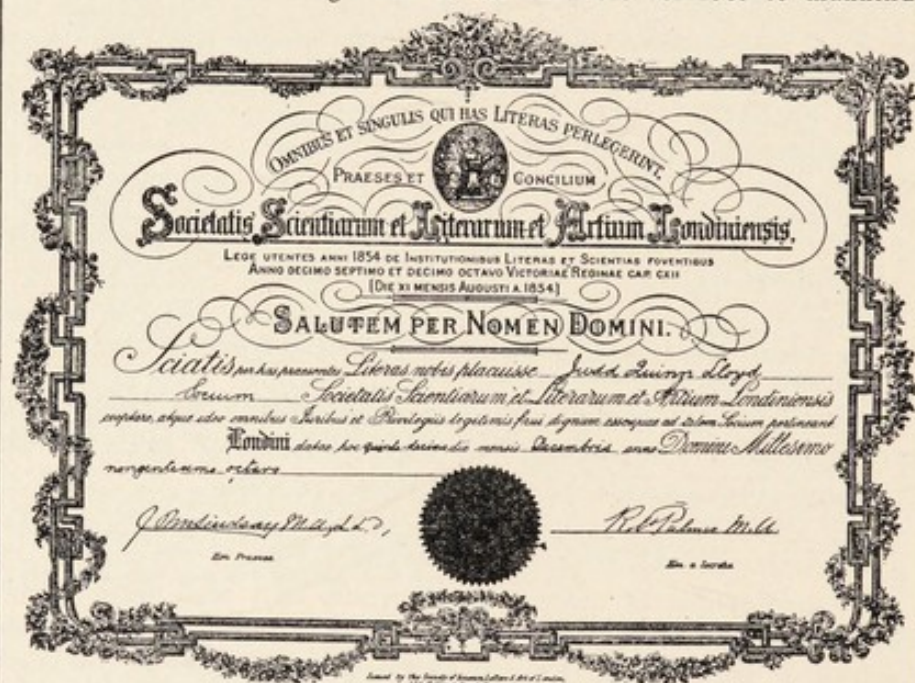 OMNIBUS ET SINGULIS QUI HAS LITERAS PERLEGERINT,
PRAESES ET CONCILIUM
Societatis Scientiarum et Literarum et Artium Londiniensis,
LEGE UTENTES ANNI 1854 DE INSTITUTIONIBUS LITERAS ET SCIENTIAS FOVENTIBUS
ANNO DECIMO SEPTIMO ET DECIMO OCTAVO VICTORIAE REGINAE CAP. CXII
[DIE XI MENSIS AUGUSTI A. 1854]
SALUTEM PER NOMEN DOMINI.
Sciatis per has praesentes Literas nobis placuisse Judd Quinn Lloyd
Socium Societatis Scientiarum et Literarum et Artium Londiniensis
cooptare, atque adeo omnibus Juribus et Privilegiis legitimis frui dignum essequae ad talem Socium pertineant
Londini datae hoc quinto decimo die mensis Decembris anno Domini Millesimo
nongentesimo octavo
M.A.
Issued by the Society of Science, Letters & Art of London,